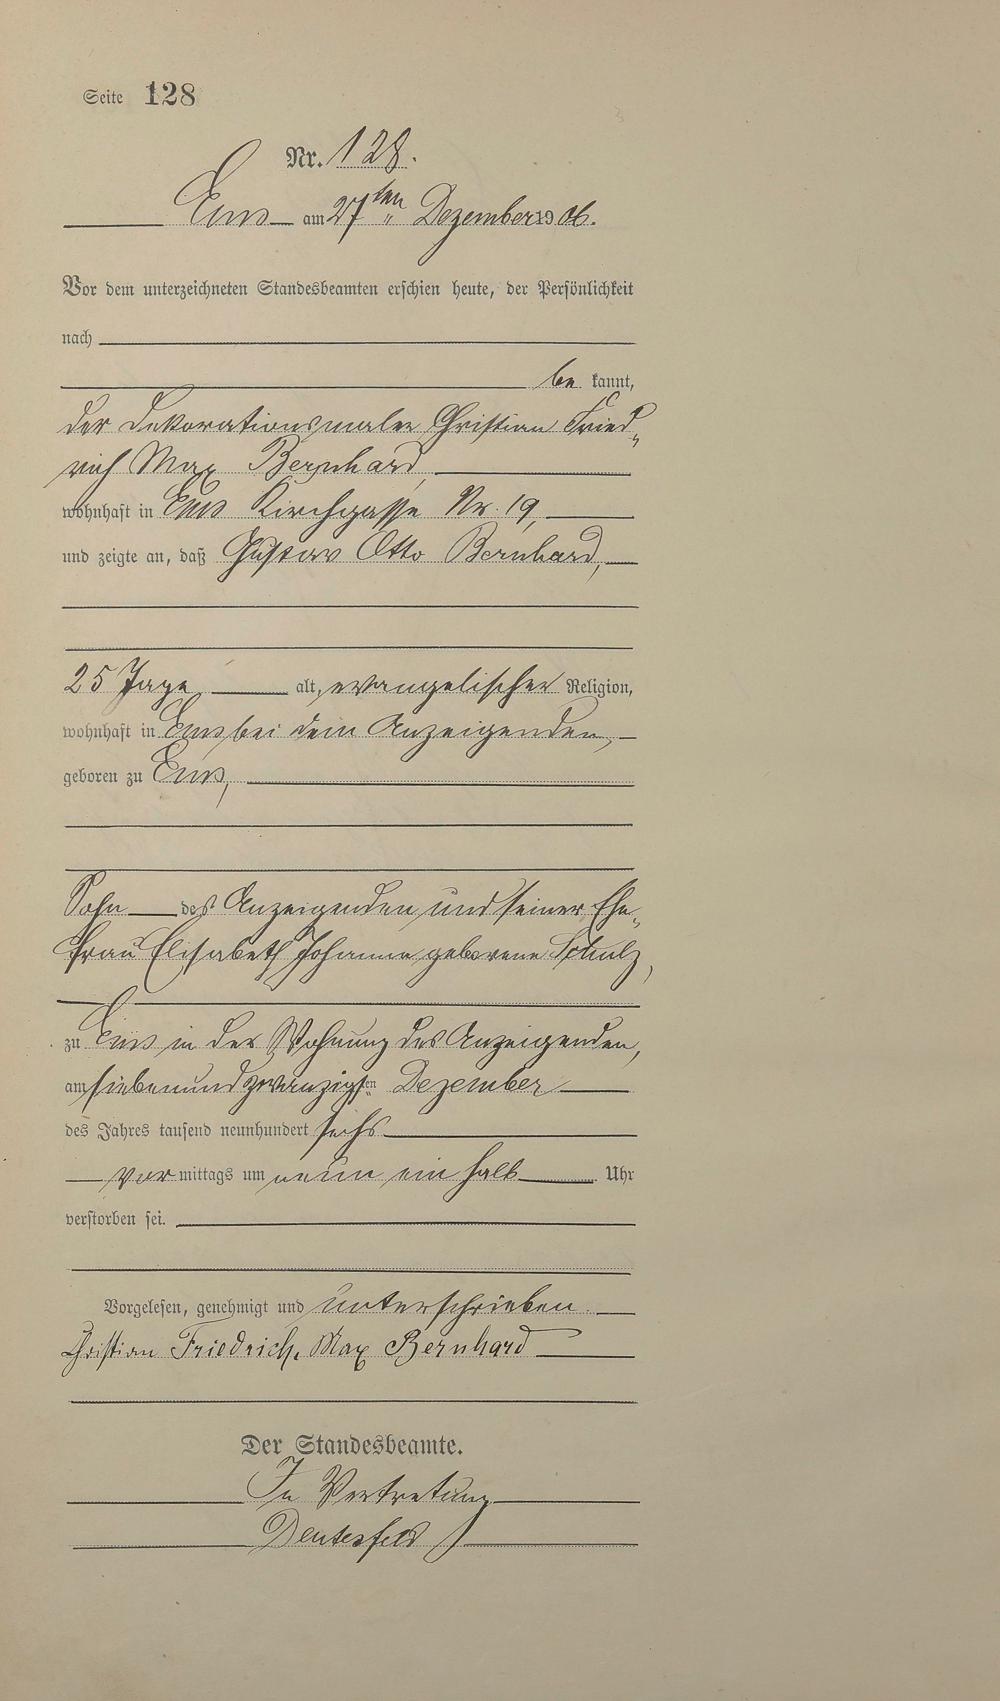 Seite 128
Nr. 128.
Ems am 27ten Dezember 1906.
Vor dem unterzeichneten Standesbeamten erschien heute, der Persönlichkeit
nach
be kannt,
der Dekorationsmaler Christian Fried-
rich Max Bernhard,
wohnhaft in Ems Kirchgasse Nr. 19,
und zeigte an, daß Gustav Otto Bernhard,
25 Tage alt, evangelischer Religion,
wohnhaft in Ems bei dem Anzeigenden,
geboren zu Ems,
Sohn des Anzeigenden und seiner Ehe-
frau Elisabeth Johanna geborene Schulz,
zu Ems in der Wohnung des Anzeigenden,
am siebenundzwanzigsten Dezember
des Jahres tausend neunhundert sechs
vor mittags um neun ein halb Uhr
verstorben sei.
Vorgelesen, genehmigt und unterschrieben.
Christian Friedrich, Max Bernhard
Der Standesbeamte.
In Vertretung